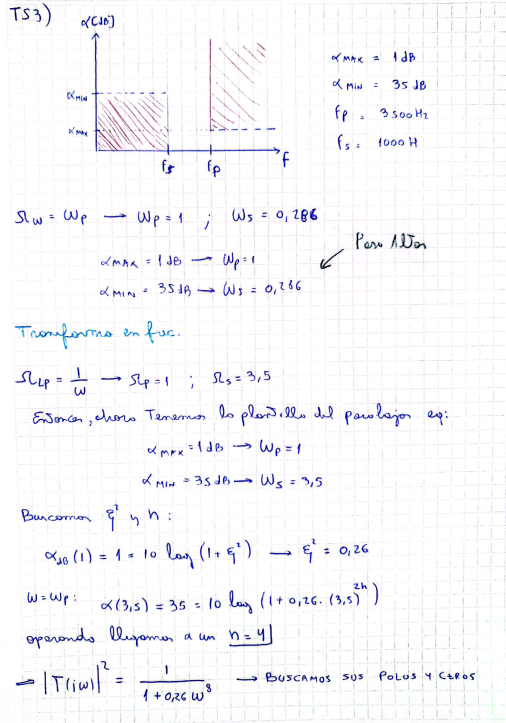 TS3)
α[dB]
α MIN
α MAX
fs
fp
f
α MAX = 1 dB
α MIN = 35 dB
fp = 3500Hz
fs = 1000 H
Ωw = Wp → Wp = 1 ; Ws = 0,286
Paso Altos
α MAX = 1 dB → Wp = 1
α MIN = 35 dB → Ws = 0,286
Transformo en frec.
ΩLP = 1/w → Ωp = 1 ; Ωs = 3,5
Entonces, ahora Tenemos la plantilla del pasabajos eq:
α MAX = 1 dB → Wp = 1
α MIN = 35 dB → Ws = 3,5
Buscamos ξ² y n :
αdB (1) = 1 = 10 log (1 + ξ²) → ξ² = 0,26
W = Wp : α(3,5) = 35 = 10 log (1 + 0,26 . (3,5)^2n)
operando llegamos a un n = 4
→ |T(jw)|² = 1 / (1 + 0,26 W⁸) → BUSCAMOS SUS POLOS Y CEROS